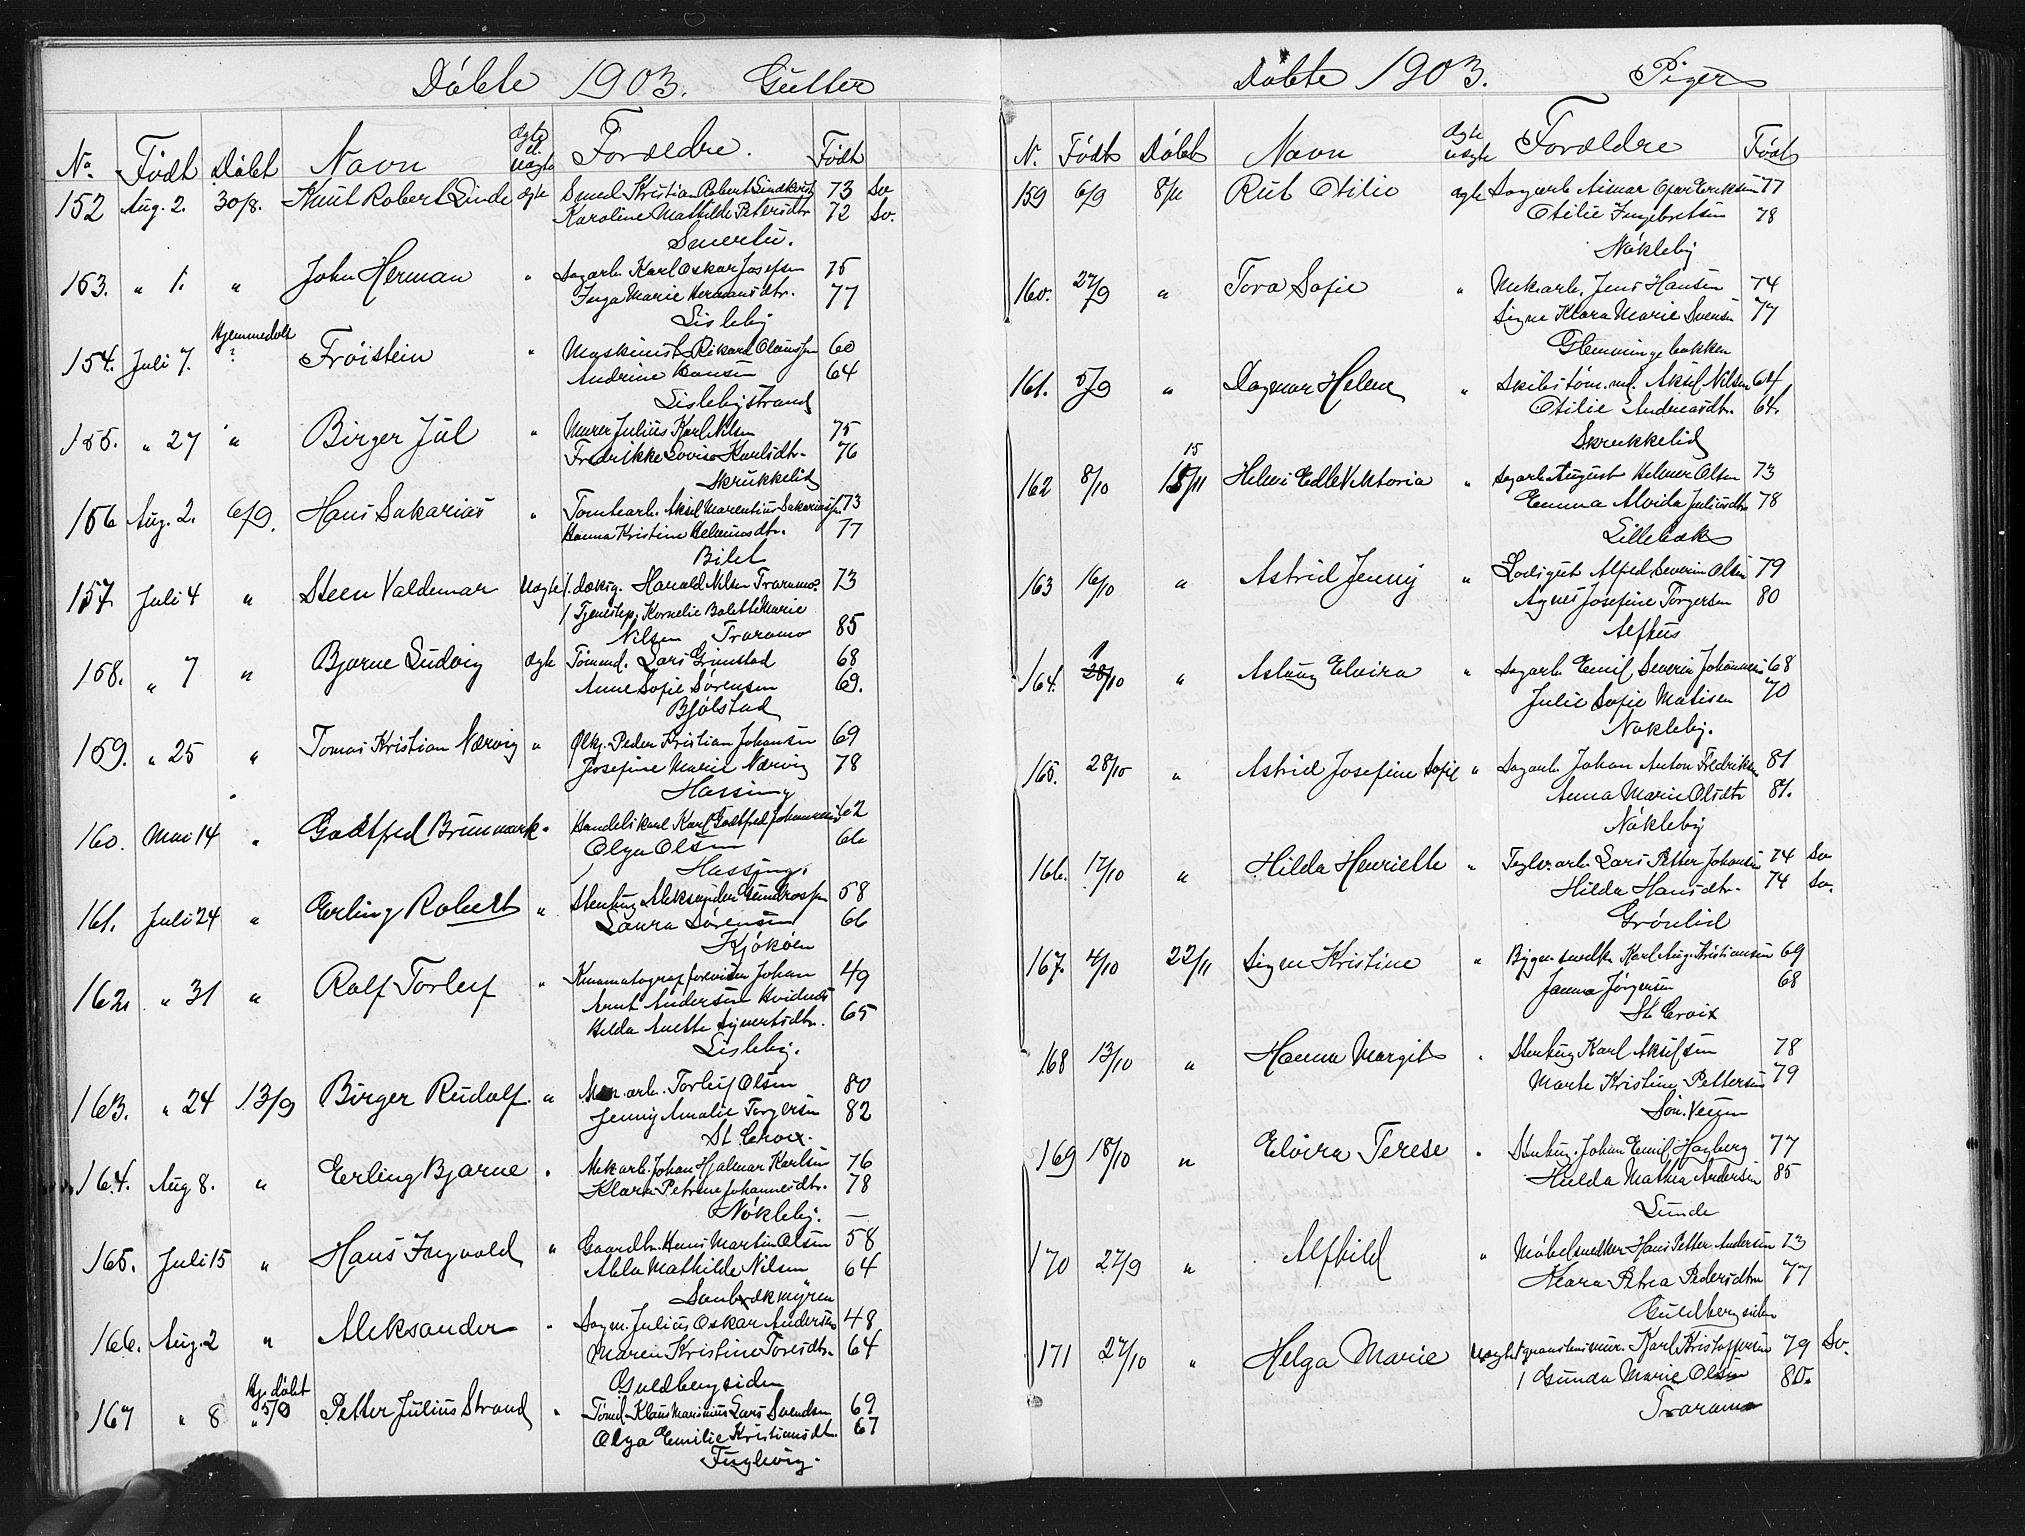 Døbte 1903. Gutter
No Født Døbt Navn ægte el. uægte Forældre. Født
152 Aug. 2. 30/8. Knut Robert Linde ægte Smed Kristian Robert Lindkvist 73 Sv
Karoline Mathilde Petersdtr 72 Sv.
Smertu.
153. " 1. " John Herman " Dagarb. Karl Oskar Josefsen 75
Inga Marie Hermansdtr. 77
Lisleby
154. Juli 7. Hjemmedøbt ? Frøistein " Maskinist Rikard Olaussen 60
Andrine Hansen 64
Lislebystrand
155. " 27 " Birger Jul " Murer Julius Karl Nilsen 75
Fredrikke Lovise Karlsdtr. 76
Skrukkelid
156 Aug. 2. 6/9. Hans Sakarias " Tomtearb. Aksel Marentius Sakariassen 73
Hanna Kristine Helmersdtr. 77
Bilet
157 Juli 4 " Steen Valdemar uægte f. Harald Nilsen Traramo. 73
/ Tjenstep. Kornelie Bolette Marie
Nilsen Traramo 85
158. " 7 " Bjarne Ludvig ægte Tømmd. Lars Grimstad 68
Anne Sofie Sørensen 69.
Bjølstad
159. " 25 " Tomas Kristian Nærvig " Ølkj. Peder Kristian Johansen 69
Josefine Marie Nærvig 78
Hassing
160. Mai 14 " Godtfred Brunmark " Handelskarl Karl Godtfred Johannesen 62
Olga Olsen 66
Hassing.
161. Juli 24 " Erling Robert " Stenhug Aleksander Gundrossen 58
Laura Sørensen 66
Kjøkøen
162. " 31 " Rolf Torleif " Kinematograf forevisen Johan 49
Arnt Andersen Hvidnes
Hilda Anette Syvertsdtr. 65
Lisleby.
163. " 24 13/9 Birger Rudolf. " arb. Torleif Olsen 80
Jenny Amalie Torgersen 82
St. Croix.
164. Aug 8. " Erling Bjarne " Mek arb. Johan Hjalmar Karlsen 76
Klara Petrine Johannesdtr. 78
Nøkleby.
165. Juli 15 " Hans Ingvald " Gaardbr. Hans Martin Olsen 58
Abla Mathilde Nilsen 64
Sanbækmyren
166. Aug. 2 " Aleksander " Dagm. Julius Oskar Andersen 48
Maren Kristine Toresdtr. 64
Guldbergsiden
167 " 8 Hj. døbt " 5/9 Petter Julius Strand " Tømd. Klaus Marinius Lars Svendsen 69
Olga Emilie Kristiansdt. 67
Fuglevig.
Døbte 1903. Piger
N. Født Døbt Navn ægte uægte Forældre Født
159 6/9 8/11 Rut Otilie ægte Dagarb Aimar Oskar Eriksen 77
Otilie Ingebretsen 78
Nøkleby
160. 27/9 " Tora Sofie " Mek arb. Jens Hansen 74
Signe Klara Marie Svensen 77
Glemmingebakken
161. 5/9 " Dagmar Helene " Skibstøm.md. Aksel Nilsen 64
Otilie Andreasdtr. 64.
Skrukkelid
162 8/10 15 15/11 Helmi Edle Viktoria " Dagarb August Helmer Olsen 73
Emma Alvida Juliusdtr 78
Lillebæk
163 16/10 " Astrid Jenny " Lodsgut Alfred Severin Olsen 79
Agnes Josefine Torgersen 80
Alfhus
164. 1 28/10 " Aslaug Elvira " Dagarb Emil Severin Johannesen 68
Julie Sofie Matisen 70
Nøkleby.
165. 28/10 " Astrid Josefine Sofie " Dagarb Johan Anton Fredriksen 81
Anna Marie Olsdtr 81.
Nøkleby
166. 17/10 " Hilda Henriette " Teglv.arb. Lars Petter Johansen 74 Sv
Hilda Hansdtr. 74 Sv.
Grønlid
167. 4/10 22/11 Signe Kristine " Bygn. snedker Karl Aug. Kristiansen 69
Janna Jørgensen 68
St. Croix
168 13/10 " Hanna Margit " Stenhug Karl Akselsen 78
Marte Kristine Pettersen 79
Søn. Veum
169 18/10 " Elvira Terese " Stenhug. Johan Emil Hagberg 77
Hulda Mathea Andersen 85
Lunde
170 27/9 " Alfhild " Møbelsnedker Hans Petter Andersen 73
Klara Petra Pedersdtr 77
Guldbergsiden
171 27/10 " Helga Marie uægte f. granstensmur. Karl Kristoffersen 79 Sv.
/ Gunda Marie Olsen 80.
Traramo